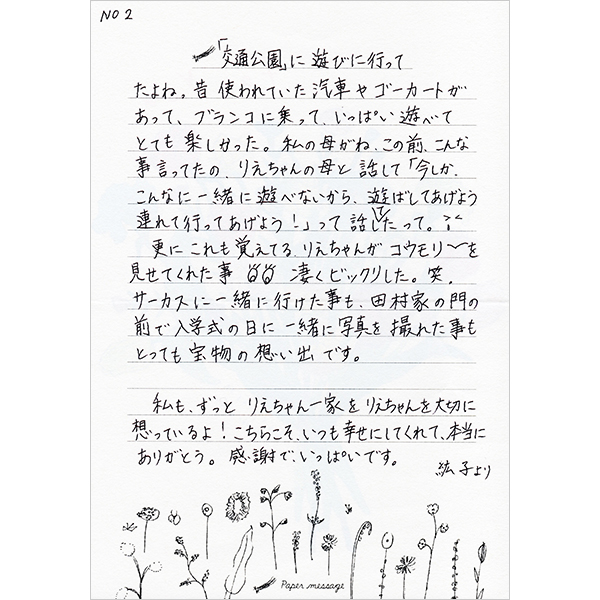 NO 2
「交通公園」に遊びに行って
たよね。昔使われていた汽車やゴーカートが
あって、ブランコに乗って、いっぱい遊べて
とても楽しかった。私の母がね、この前、こんな
事言ってたの、りえちゃんの母と話して「今しか、
こんなに一緒に遊べないから、遊ばしてあげよう
連れて行ってあげよう！」って話してたって。
更にこれも覚えてる、りえちゃんがコウモリを
見せてくれた事 凄くビックリした。笑。
サーカスに一緒に行けた事も、田村家の門の
前で入学式の日に一緒に写真を撮れた事も
とっても宝物の想い出です。
私も、ずっとりえちゃん一家をりえちゃんを大切に
想っているよ！こちらこそ、いつも幸せにしてくれて、本当に
ありがとう。感謝で、いっぱいです。
紘子より
Paper message